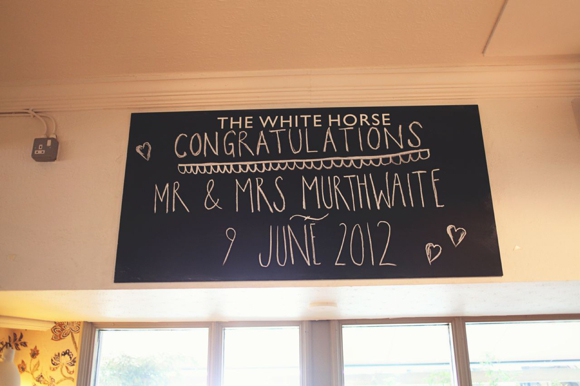 THE WHITE HORSE
CONGRATULATIONS
MR & MRS MURTHWAITE
9 JUNE 2012